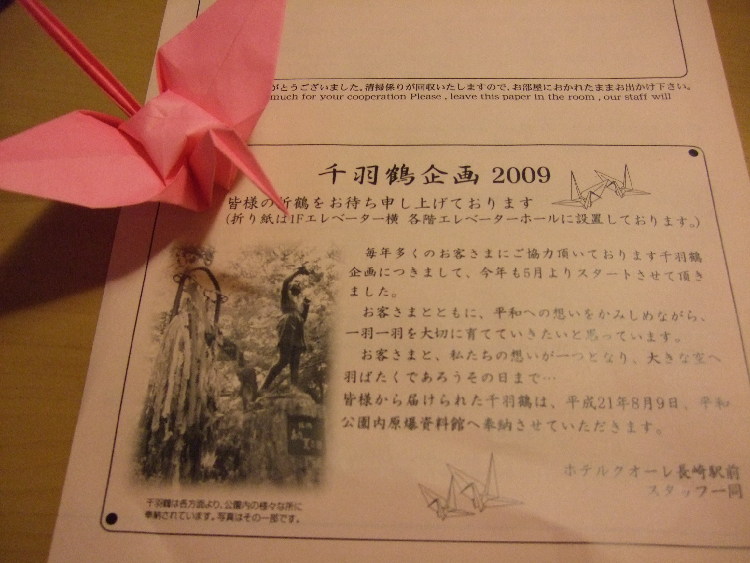 がとうございました。清掃係りが回収いたしますので、お部屋におかれたままお出かけ下さい。
much for your cooperation Please , leave this paper in the room , our staff will
千羽鶴企画 2009
皆様の折鶴をお待ち申し上げております
(折り紙は1Fエレベーター横 各階エレベーターホールに設置しております。)
毎年多くのお客さまにご協力頂いております千羽鶴
企画につきまして、今年も5月よりスタートさせて頂き
ました。
お客さまとともに、平和への想いをかみしめながら、
一羽一羽を大切に育てていきたいと思っています。
お客さまと、私たちの想いが一つとなり、大きな空へ
羽ばたくであろうその日まで…
皆様から届けられた千羽鶴は、平成21年8月9日、平和
公園内原爆資料館へ奉納させていただきます。
ホテルクオーレ長崎駅前
スタッフ一同
千羽鶴は各方面より、公園内の様々な所に
奉納されています。写真はその一部です。